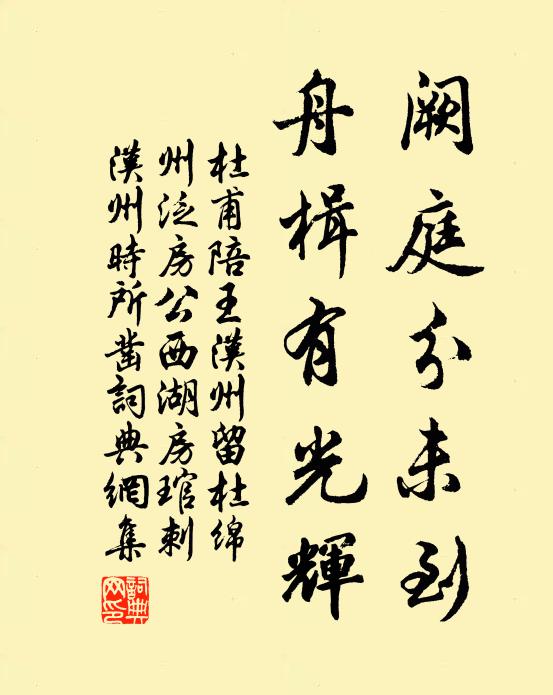 闕庭分未到
舟楫有光輝
杜甫陪王漢州留杜綿
州泛房公西湖房琯刺
漢州時所凿詞典網集
詞典網印